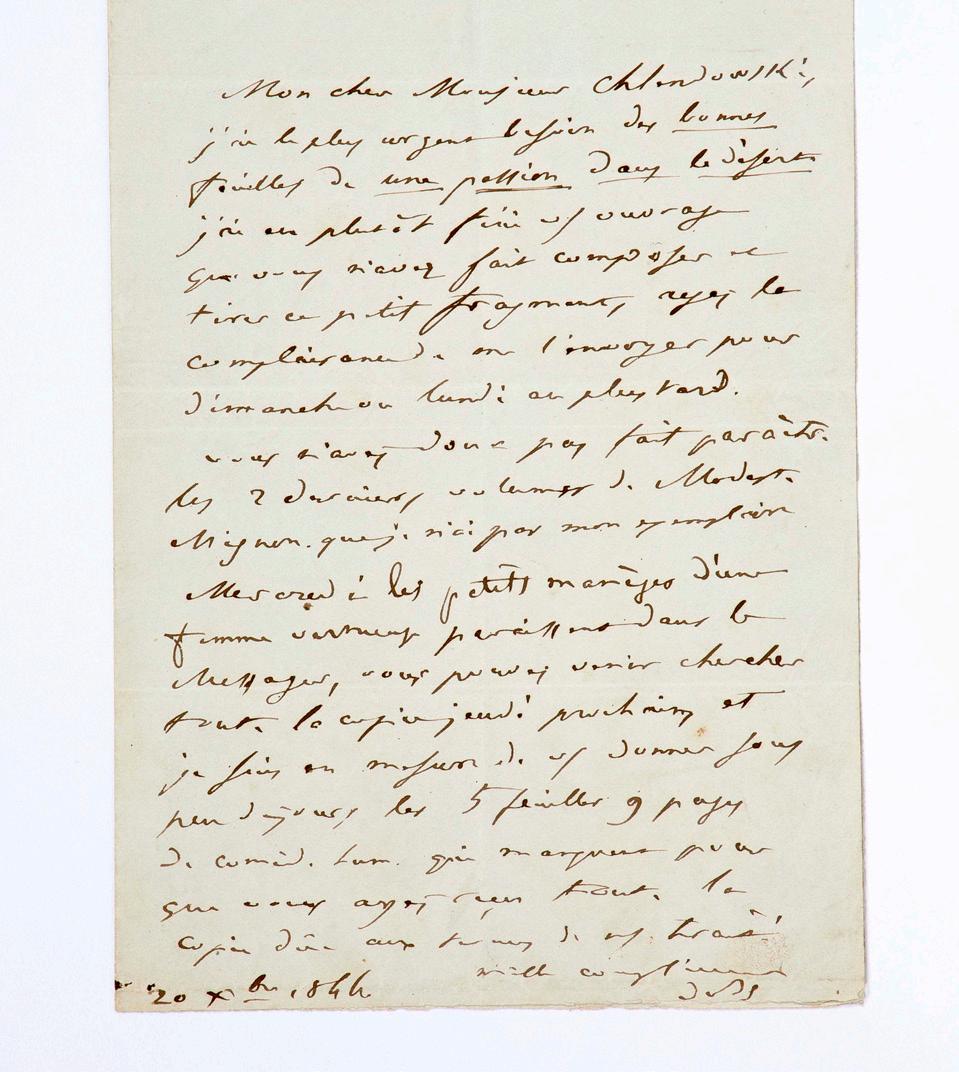 Mon cher Monsieur Chlendowski,
j'ai le plus urgent besoin des bonnes
feuilles de une passion dans le désert
j'ai eu plutôt fini vs ouvrage
que vous n'avez fait composer et
tirer ce petit fragment, ayez la
complaisance de me l'envoyer pour
dimanche ou lundi au plus tard.
vous n'avez donc pas fait paraître
les 2 derniers volumes de Modeste
Mignon. que je n'ai pas mon exemplaire
Mercredi les petits manèges d'une
femme vertueuse paraissent dans le
Messager, vous pouvez venir chercher
toute la copie jeudi prochain, et
je suis en mesure de vs donner sous
peu de jours les 5 feuilles 9 pages
de coméd. hum. qui manquent pour
que vous ayez reçu toute la
copie dûe aux termes de nos traités
mille compliments
20 Xbre 1844 de Bc